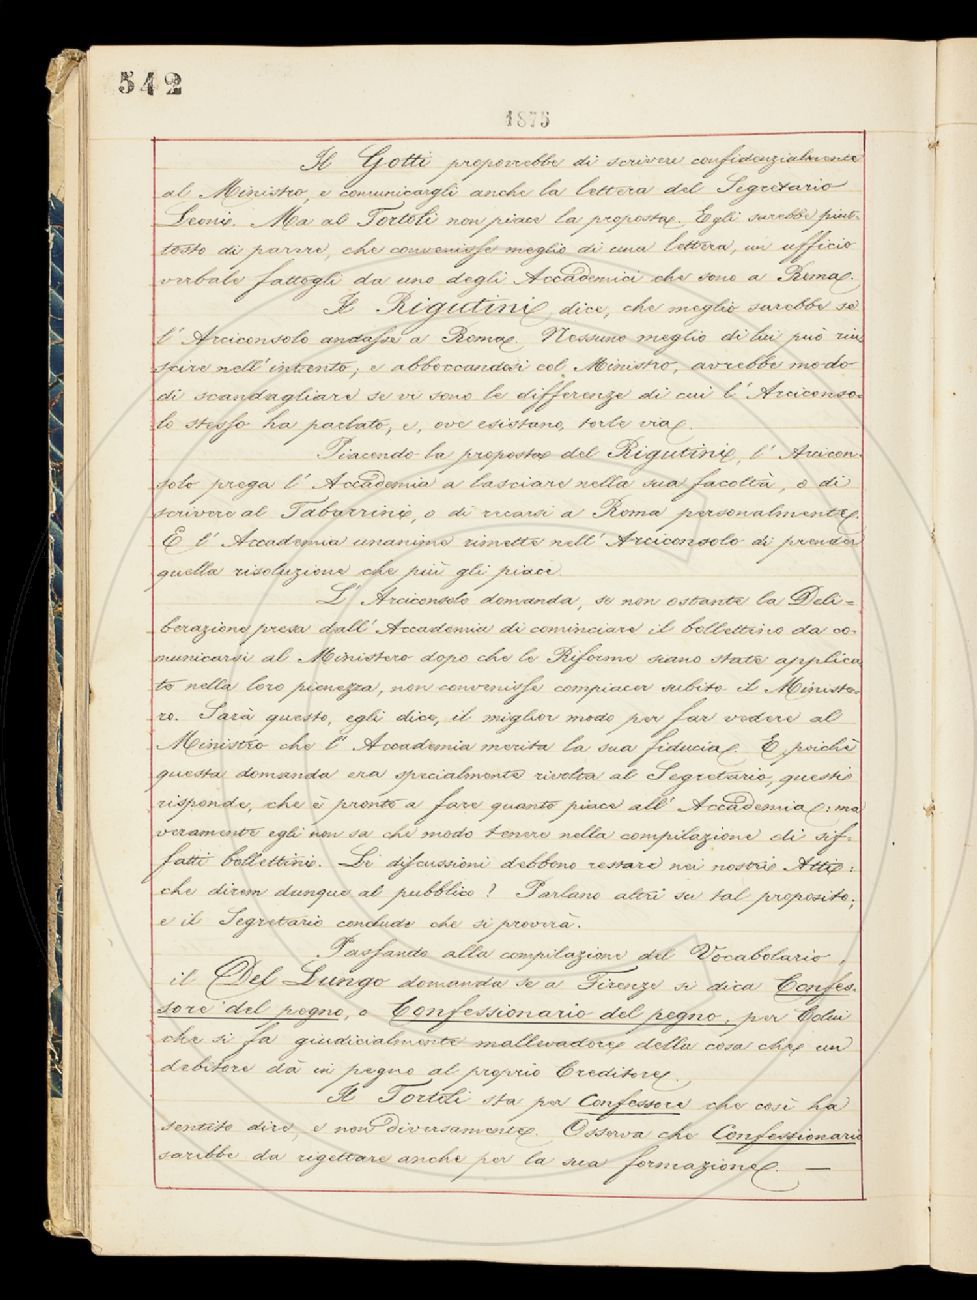 542
1875
Il Gotti proporrebbe di scrivere confidenzialmente
al Ministro, e comunicargli anche la lettera del Segretario
Leoni. Ma al Tortoli non piace la proposta. Egli sarebbe piut-
tosto di parere, che convenisse meglio di una lettera, un ufficio
verbale fattogli da uno degli Accademici che sono a Roma.
Il Rigutini dice, che meglio sarebbe se
l'Arciconsolo andasse a Roma. Nessuno meglio di lui può riu-
scire nell'intento; e abboccandosi col Ministro, avrebbe modo
di scandagliare se vi sono le differenze di cui l'Arciconso-
lo stesso ha parlato, e, ove esistano, torle via.
Piacendo la proposta del Rigutini, l'Arcicon-
solo prega l'Accademia a lasciare nella sua facoltà, o di
scrivere al Tabarrini, o di recarsi a Roma personalmente.
E l'Accademia unanime rimette nell'Arciconsolo di prender
quella risoluzione che più gli piace.
L'Arciconsolo domanda, se non ostante la Deli=
berazione presa dall'Accademia di cominciare il bollettino da co-
municarsi al Ministero dopo che le Riforme siano state applica
te nella loro pienezza, non convenisse compiacer subito il Ministe-
ro. Sarà questo, egli dice, il miglior modo per far vedere al
Ministro che l'Accademia merita la sua fiducia. E poichè
questa domanda era specialmente rivolta al Segretario, questi
risponde, che è pronto a fare quanto piace all'Accademia: ma
veramente egli non sa che modo tenere nella compilazione di sif-
fatti bollettini. Le discussioni debbono restare nei nostri Atti:
che direm dunque al pubblico? Parlano altri su tal proposito;
e il Segretario conclude che si proverà.
Passando alla compilazione del Vocabolario,
il Del Lungo domanda se a Firenze si dica Confes-
sore del pegno, o Confessionario del pegno, per Colui
che si fa giudicialmente mallevadore della cosa che un
debitore dà in pegno al proprio Creditore.
Il Tortoli sta per Confessore che così ha
sentito dire, e non diversamente. Osserva che Confessionario
sarebbe da rigettare anche per la sua formazione. —